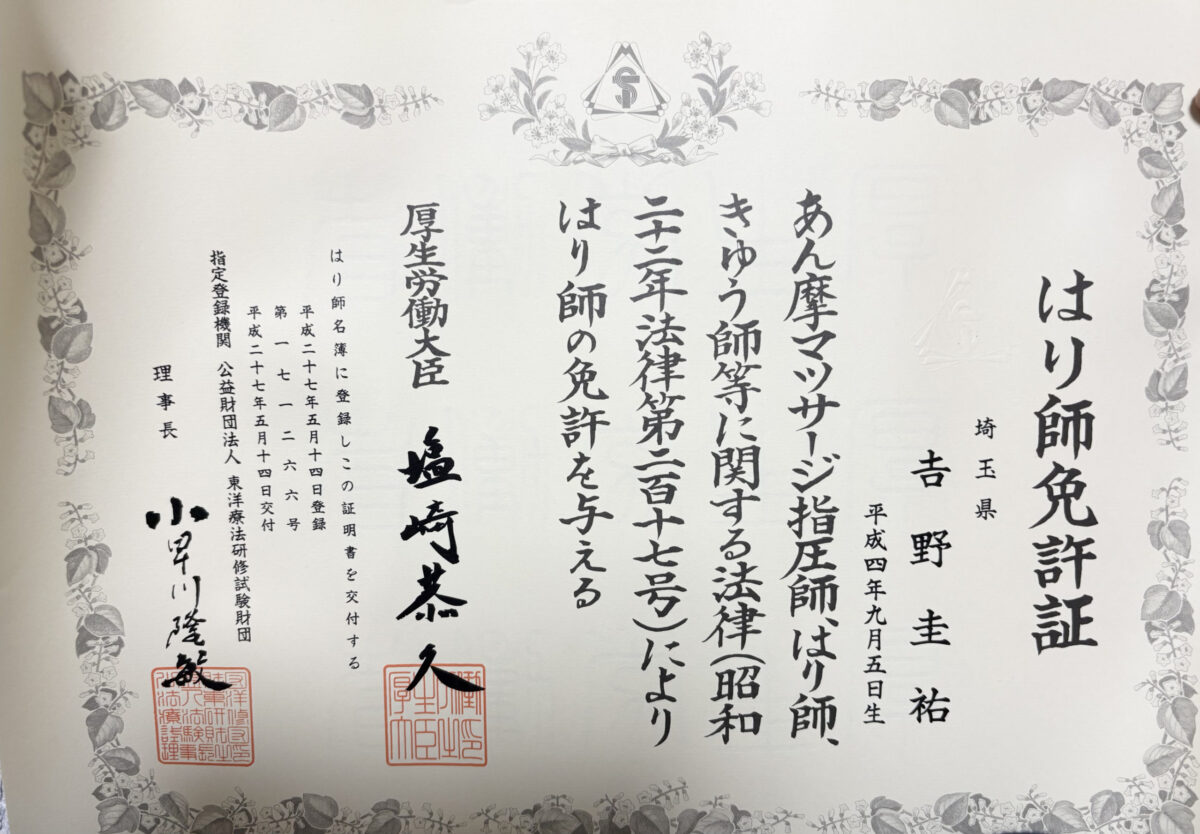 はり師免許証
埼玉県
吉野圭祐
平成四年九月五日生
あん摩マツサージ指圧師、はり師、
きゆう師等に関する法律(昭和
二十二年法律第二百十七号)により
はり師の免許を与える
厚生労働大臣 塩崎恭久
はり師名簿に登録しこの証明書を交付する
平成二十七年五月十四日登録
第一七一二六六号
平成二十七年五月十四日交付
指定登録機関 公益財団法人 東洋療法研修試験財団
理事長 小早川隆敏